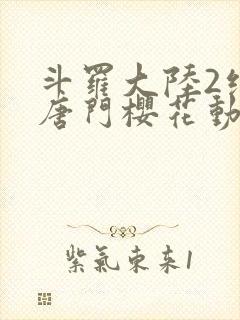 斗羅大陸2
唐門櫻花動
紫氣東来1